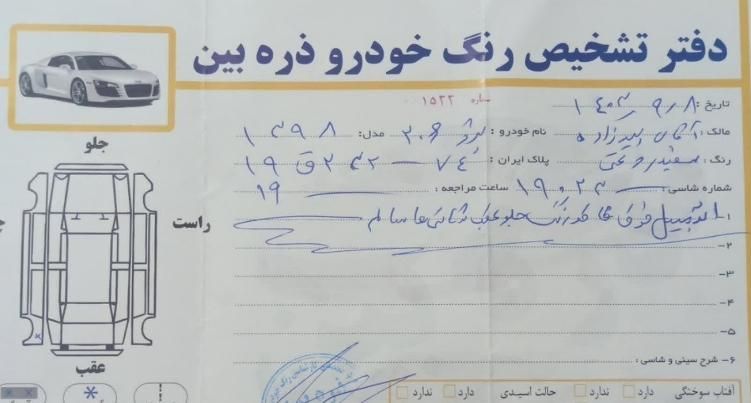 دفتر تشخیص رنگ خودرو ذره بین
شماره ۱۵۲۲
تاریخ : ۱۴۰۳/۹/۸
مالک : آقای
نام خودرو : پژو ۲۰۶
مدل : ۱۳۹۸
رنگ : سفید روغنی
پلاک ایران : ۷۴ — ۲۳۲ ق ۱۹
شماره شاسی :
ساعت مراجعه : ۱۹
۱- اتومبیل فوق فاقد رنگ جلو عقب شاسی ها سالم
۲-
۳-
۴-
۵-
۶- شرح سینی و شاسی :
آفتاب سوختگی دارد ندارد حالت اسیدی دارد ندارد
جلو
راست
عقب